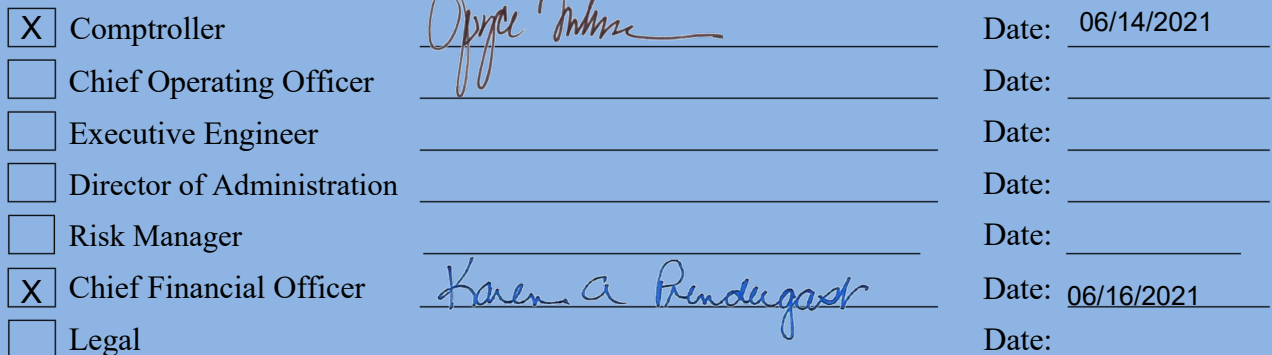 X Comptroller Date: 06/14/2021
Chief Operating Officer Date:
Executive Engineer Date:
Director of Administration Date:
Risk Manager Date:
X Chief Financial Officer Karen A Prendergast Date: 06/16/2021
Legal Date: